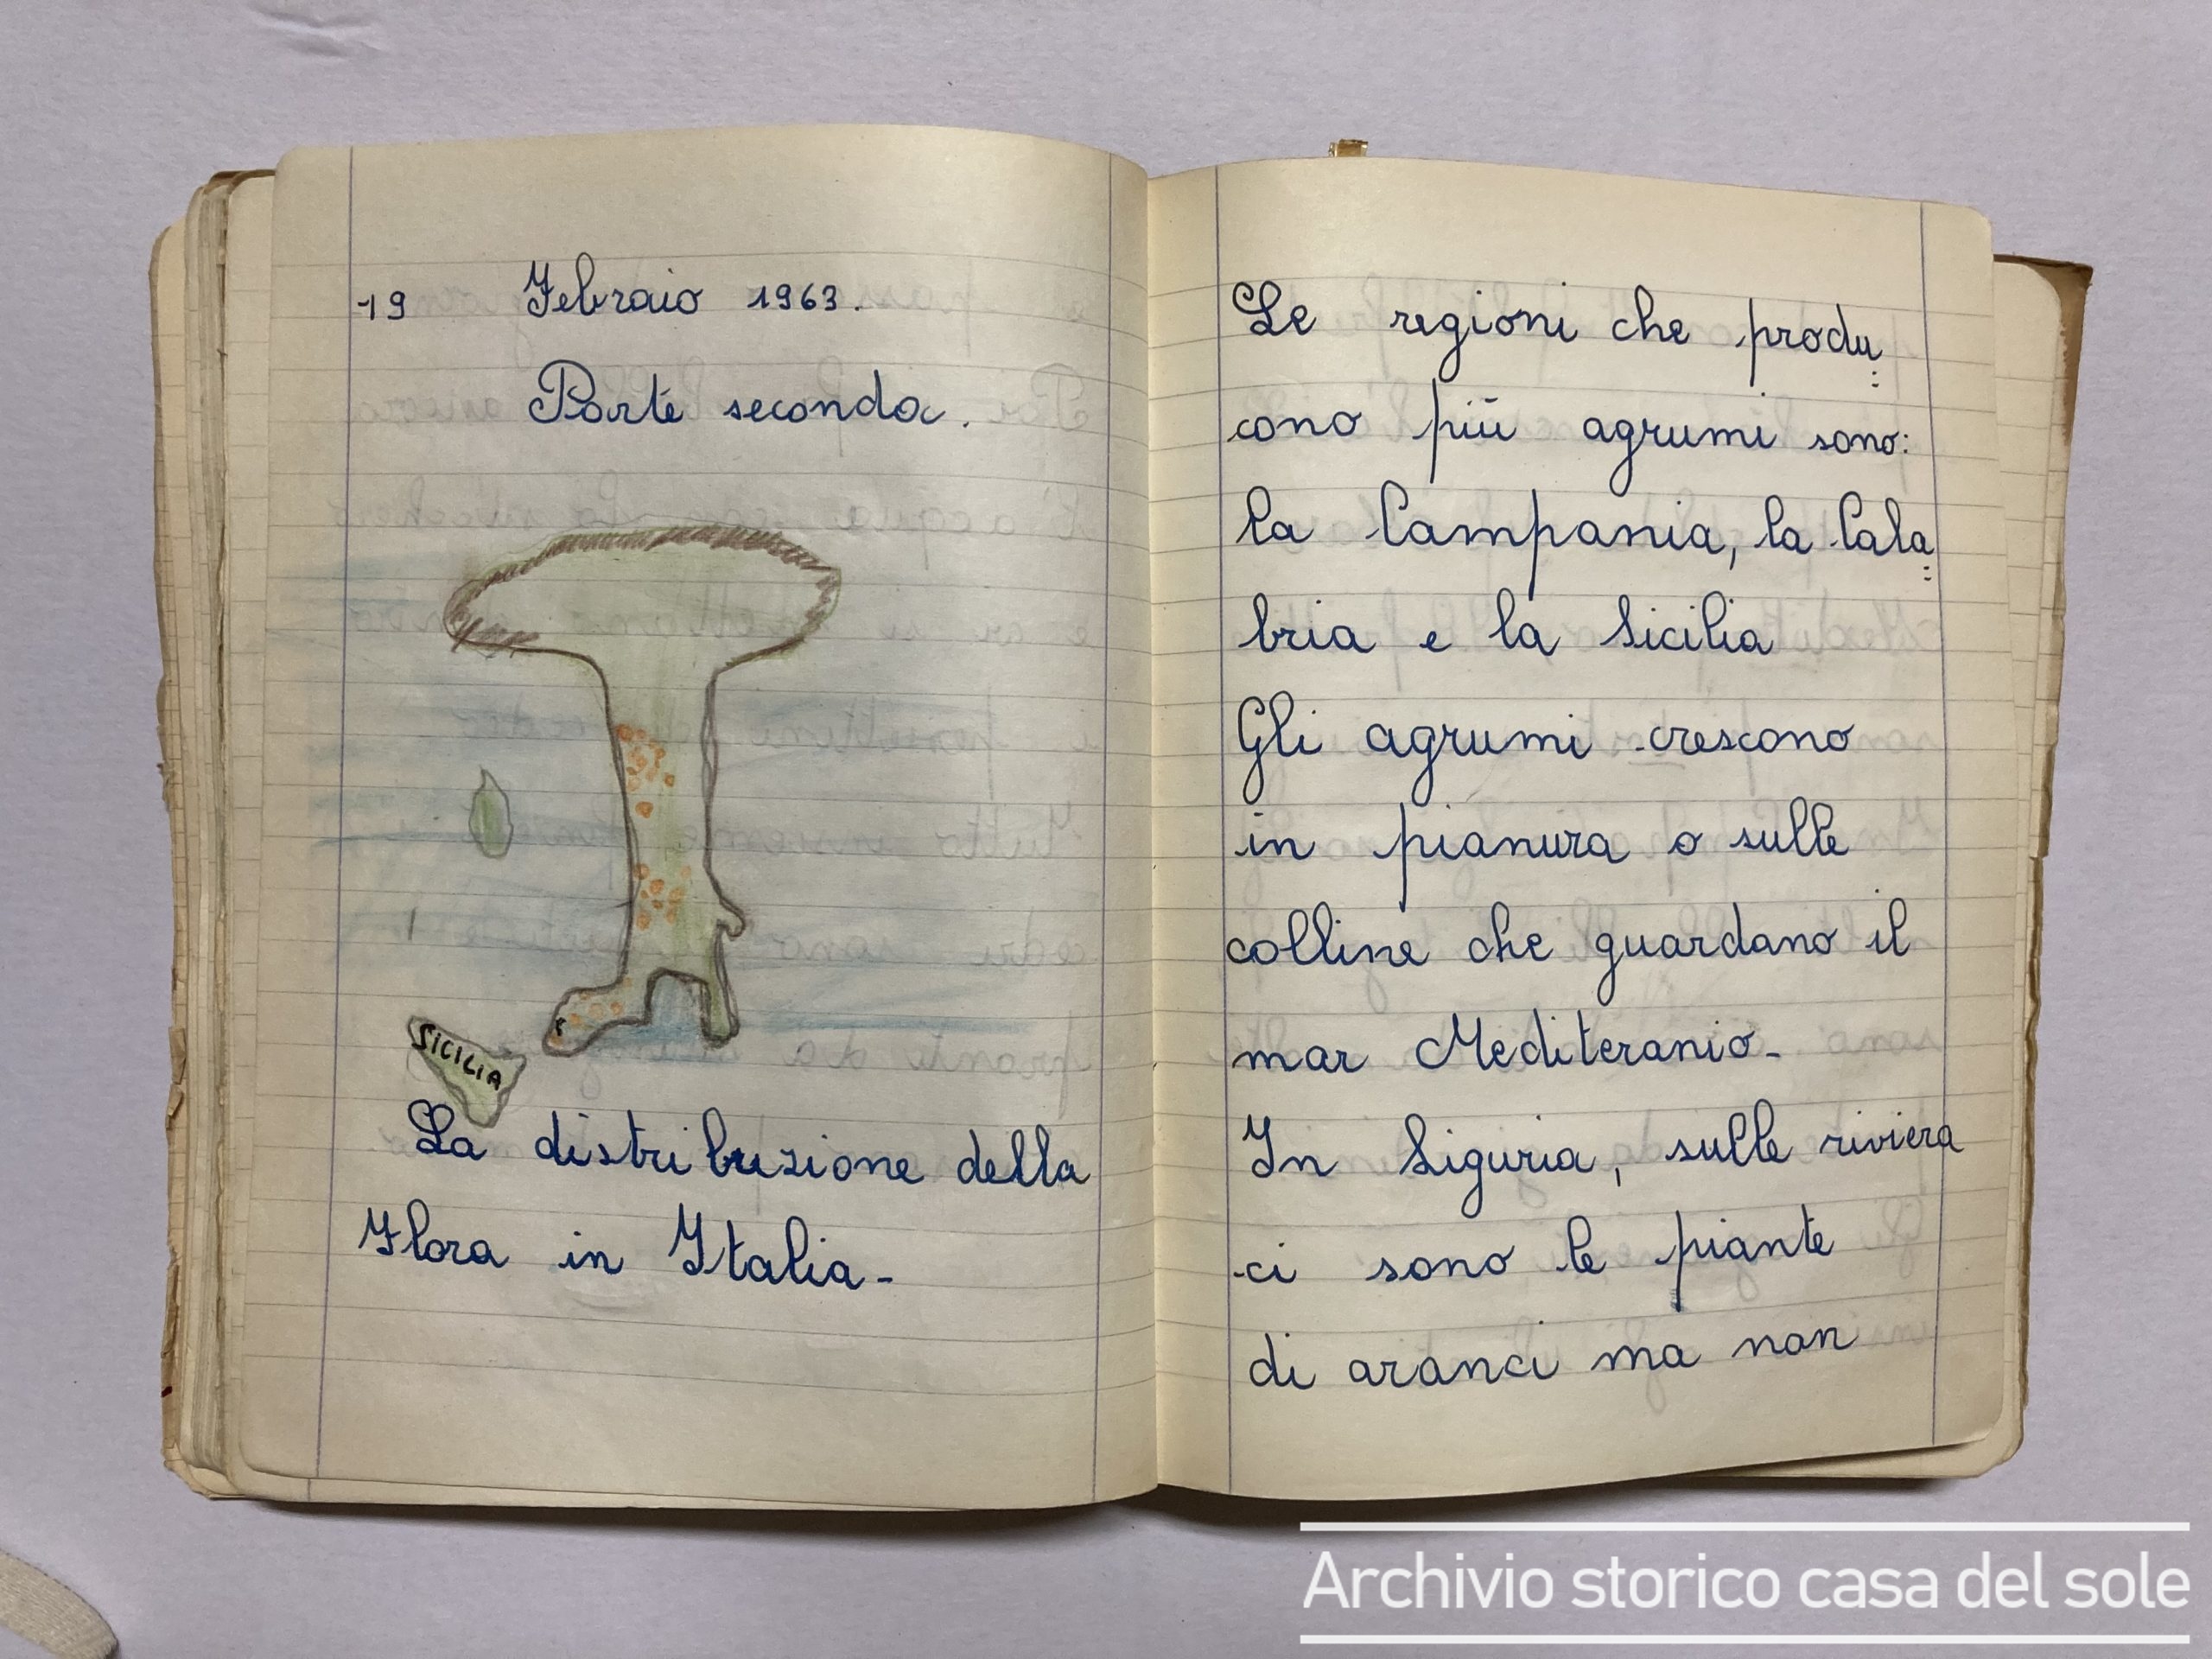 19 Febraio 1963.
Parte seconda.
SICILIA
La distribuzione della
Flora in Italia-
Le regioni che produ=
cono più agrumi sono:
la Campania, la Cala=
bria e la Sicilia
Gli agrumi crescono
in pianura o sulle
colline che guardano il
mar Mediteranio-
In Liguria, sulle riviera
ci sono le piante
di aranci ma non
Archivio storico casa del sole